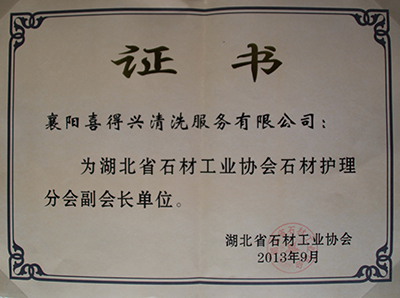 证书
襄阳喜得兴清洗服务有限公司：
为湖北省石材工业协会石材护理
分会副会长单位。
湖北省石材工业协会
2013年9月